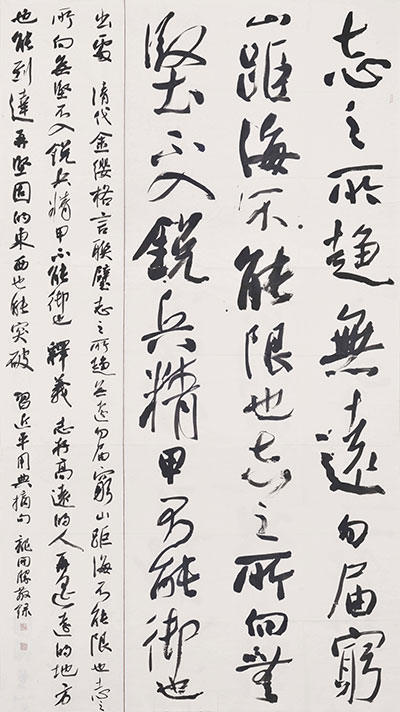 志之所趨無遠勿届窮
山距海不能限也志之所向無
堅不入銳兵精甲不能御也
出處 清代金纓格言聯璧志之所趨無遠勿届窮山距海不能限也志之
所向無堅不入銳兵精甲不能御也 釋義 志存高遠的人再遥遠的地方
也能到達再堅固的東西也能突破 習近平用典摘句 龍開勝敬録